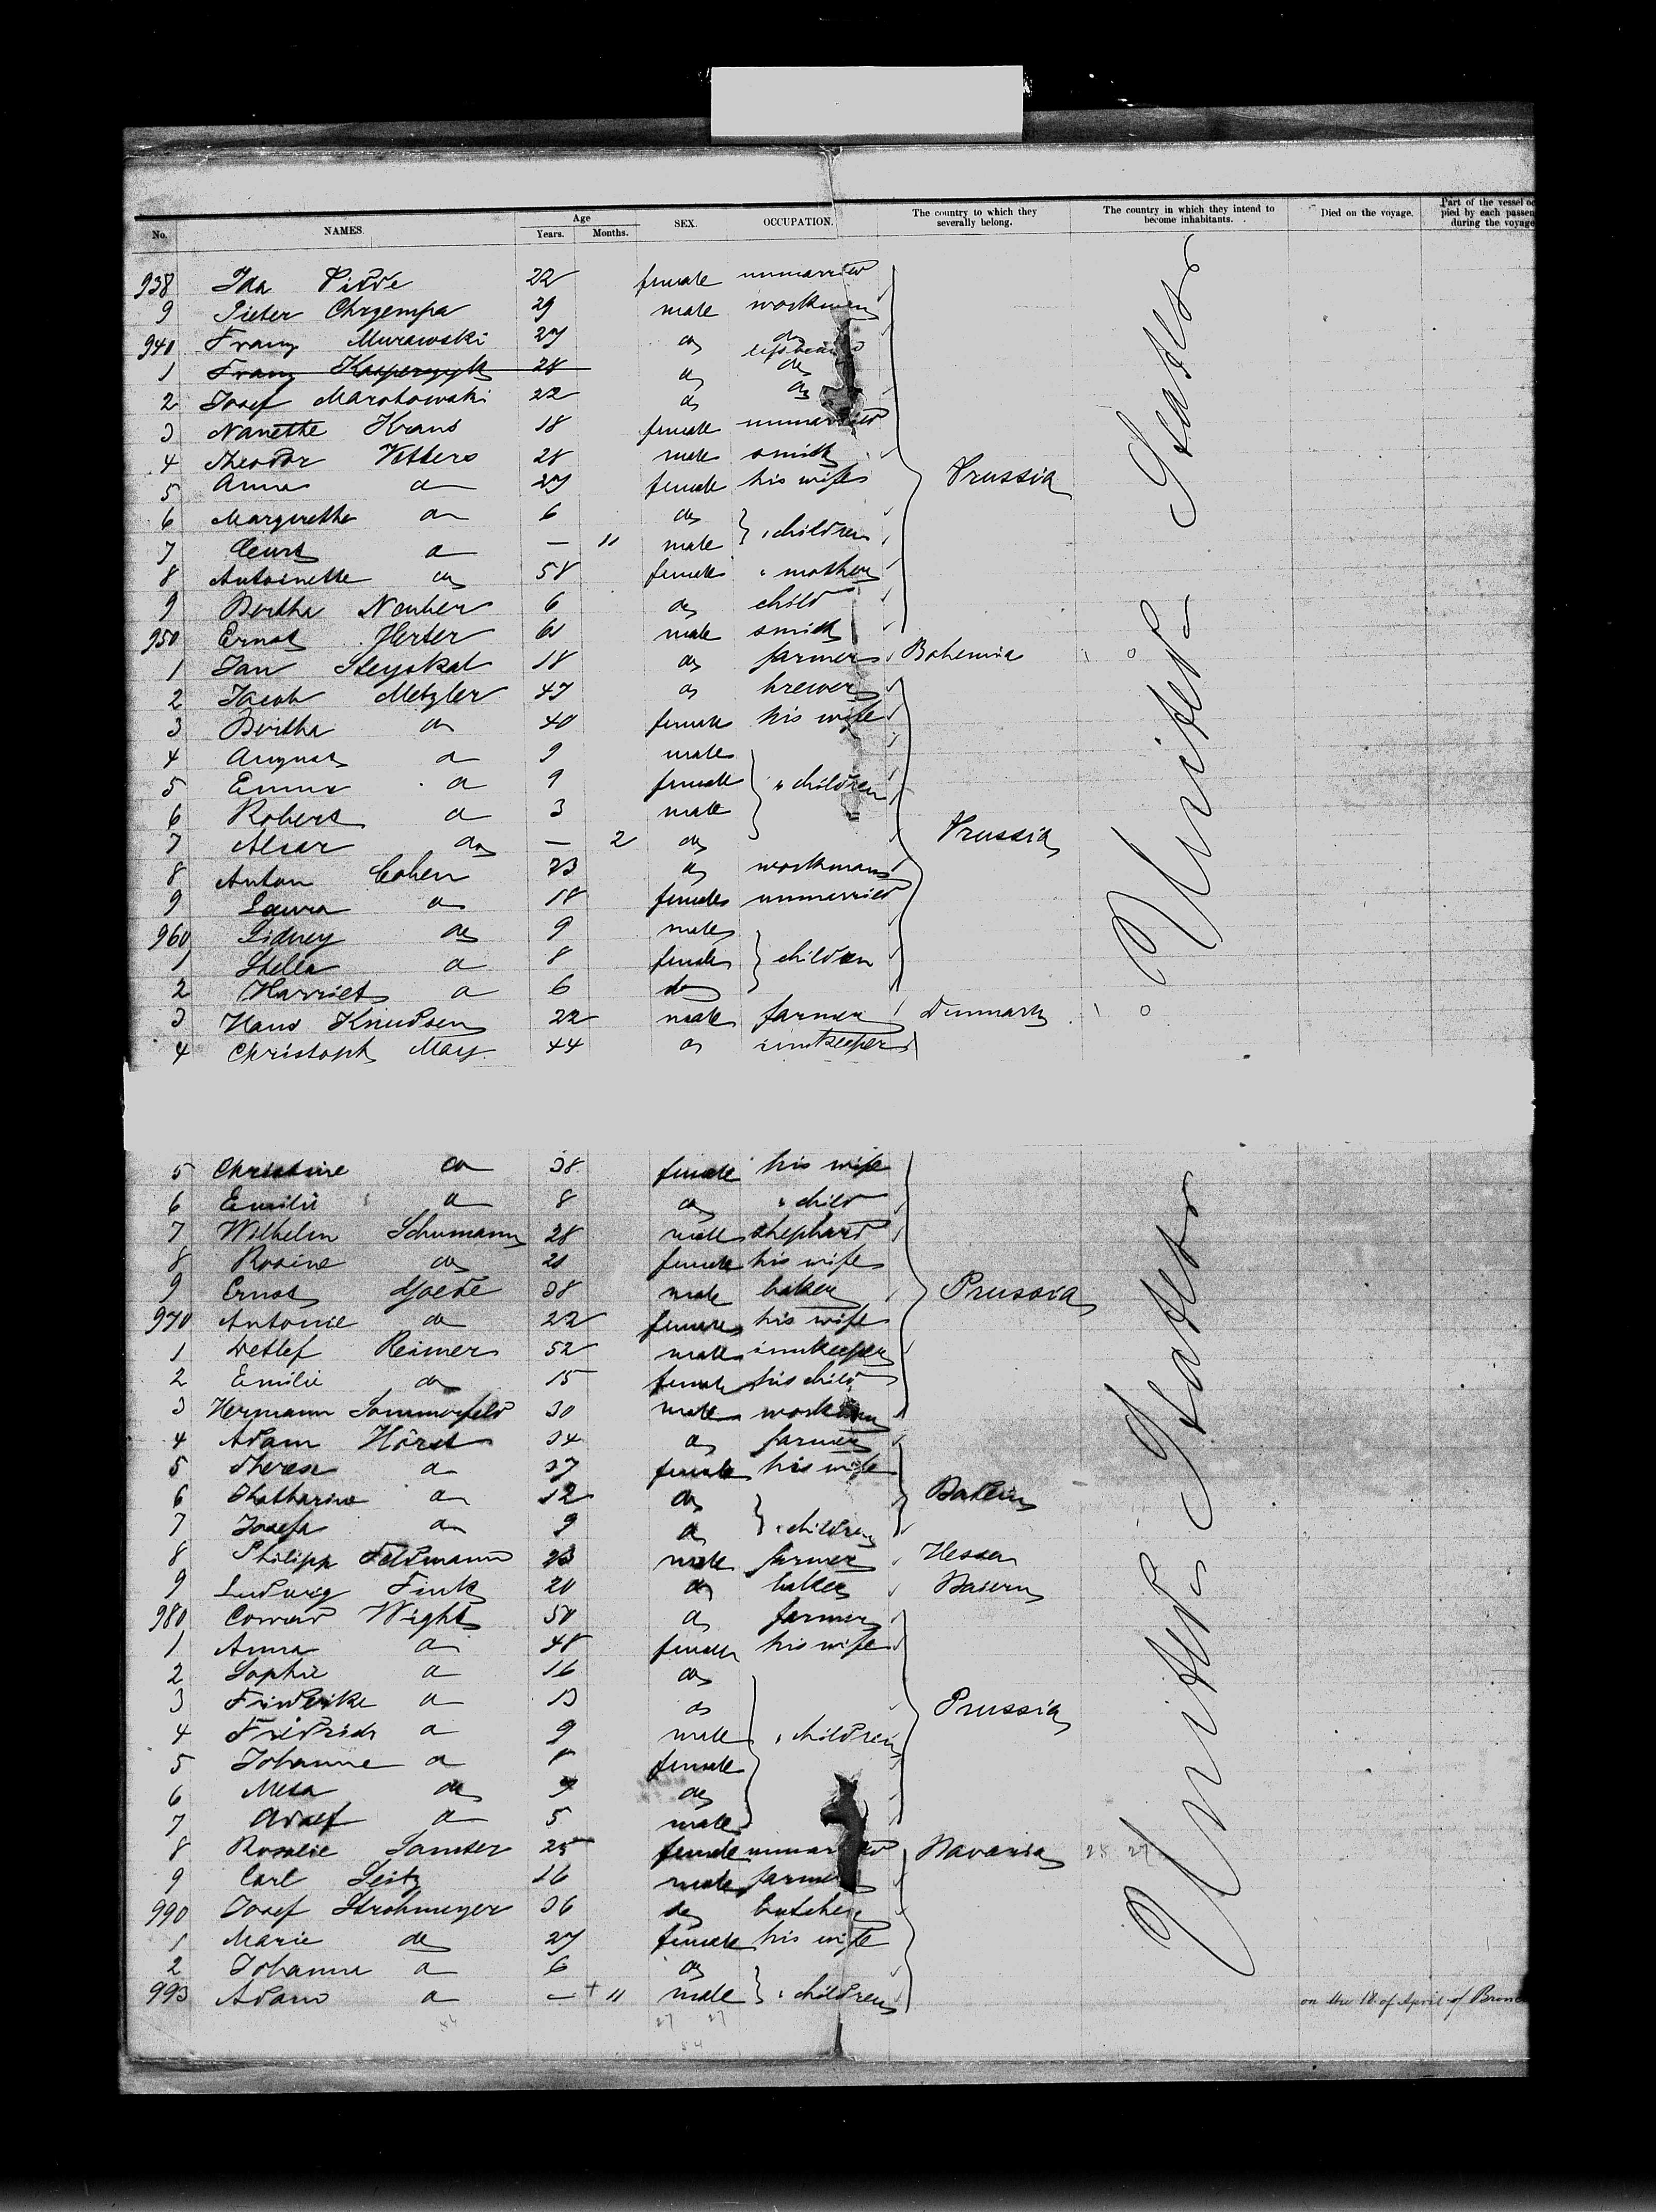 No. NAMES. Age Years. Months. SEX. OCCUPATION. The country to which they severally belong. The country in which they intend to become inhabitants. Died on the voyage. Part of the vessel oc pied by each passen during the voyage
938 Ida 22 female unmarried
9 Pieter Chrzempa 29 male workman
940 Franz Murawski 27 do do
left behind
1 Franz Kasperzyk 28 do do
2 Josef Marohowski 22 do do
3 Nanette Kraus 18 female unmarried
4 Theodor Vetters 28 male smith
5 Anna do 27 female his wife Prussia
6 Margarethe do 6 do
7 Curt do — 11 male " children
8 Antoinette do 58 female " mother
9 Bertha Neuber 6 do child
950 Ernst Herter male smith
1 Jan Steyskal 18 do farmer Bohemia
2 Jacob Metzler 47 do brewer
3 Bertha do 40 female his wife
4 August do 9 male
5 Emma do 9 female " children
6 Robert do 3 male
7 do — 2 do Prussia
8 Anton Cohen 23 do workman
9 Laura do 18 female unmarried
960 Sidney do 9 male
1 Stella do 8 female children
2 Harriet do 6 do
3 Hans Knudsen 22 male farmer Denmark
4 Christoph May 44 do innkeeper
United States
5 Christine do 38 female his wife
6 Emilie do 8 do " child
7 Wilhelm Schumann 28 male shephard
8 Rosine do female his wife
9 Ernst Goede 38 male baker Prussia
970 Antonie do 22 female his wife
1 Detlef Reimer 52 male innkeeper
2 Emilie do 15 female his child
3 Hermann Sommerfeld 30 male workman
4 Adam Hörst 34 do farmer
5 Therese do 37 female his wife
6 Khatharina do 12 do
7 Josefa do 9 do " children
8 Philipp Feldmann 23 male farmer Hessen
9 Ludwig Fink 20 do baker Baiern
980 Conrad Wight 50 do farmer
1 Anna do 48 female his wife
2 Sophie do 16 do
3 Friederike do 13 do Prussia
4 Friedrich do 9 male " children
5 Johanne do 8 female
6 Meta do do
7 Adolf do 5 male
8 Rosalie Samter 25 female unmarried Bavaria
9 Carl Seitz 16 male farmer
990 Josef Strohmeyer 36 do butcher
1 Marie do 27 female his wife
2 Johanna do 6 do
993 Adam do — + 11 male " children on the 18. of April of
United States